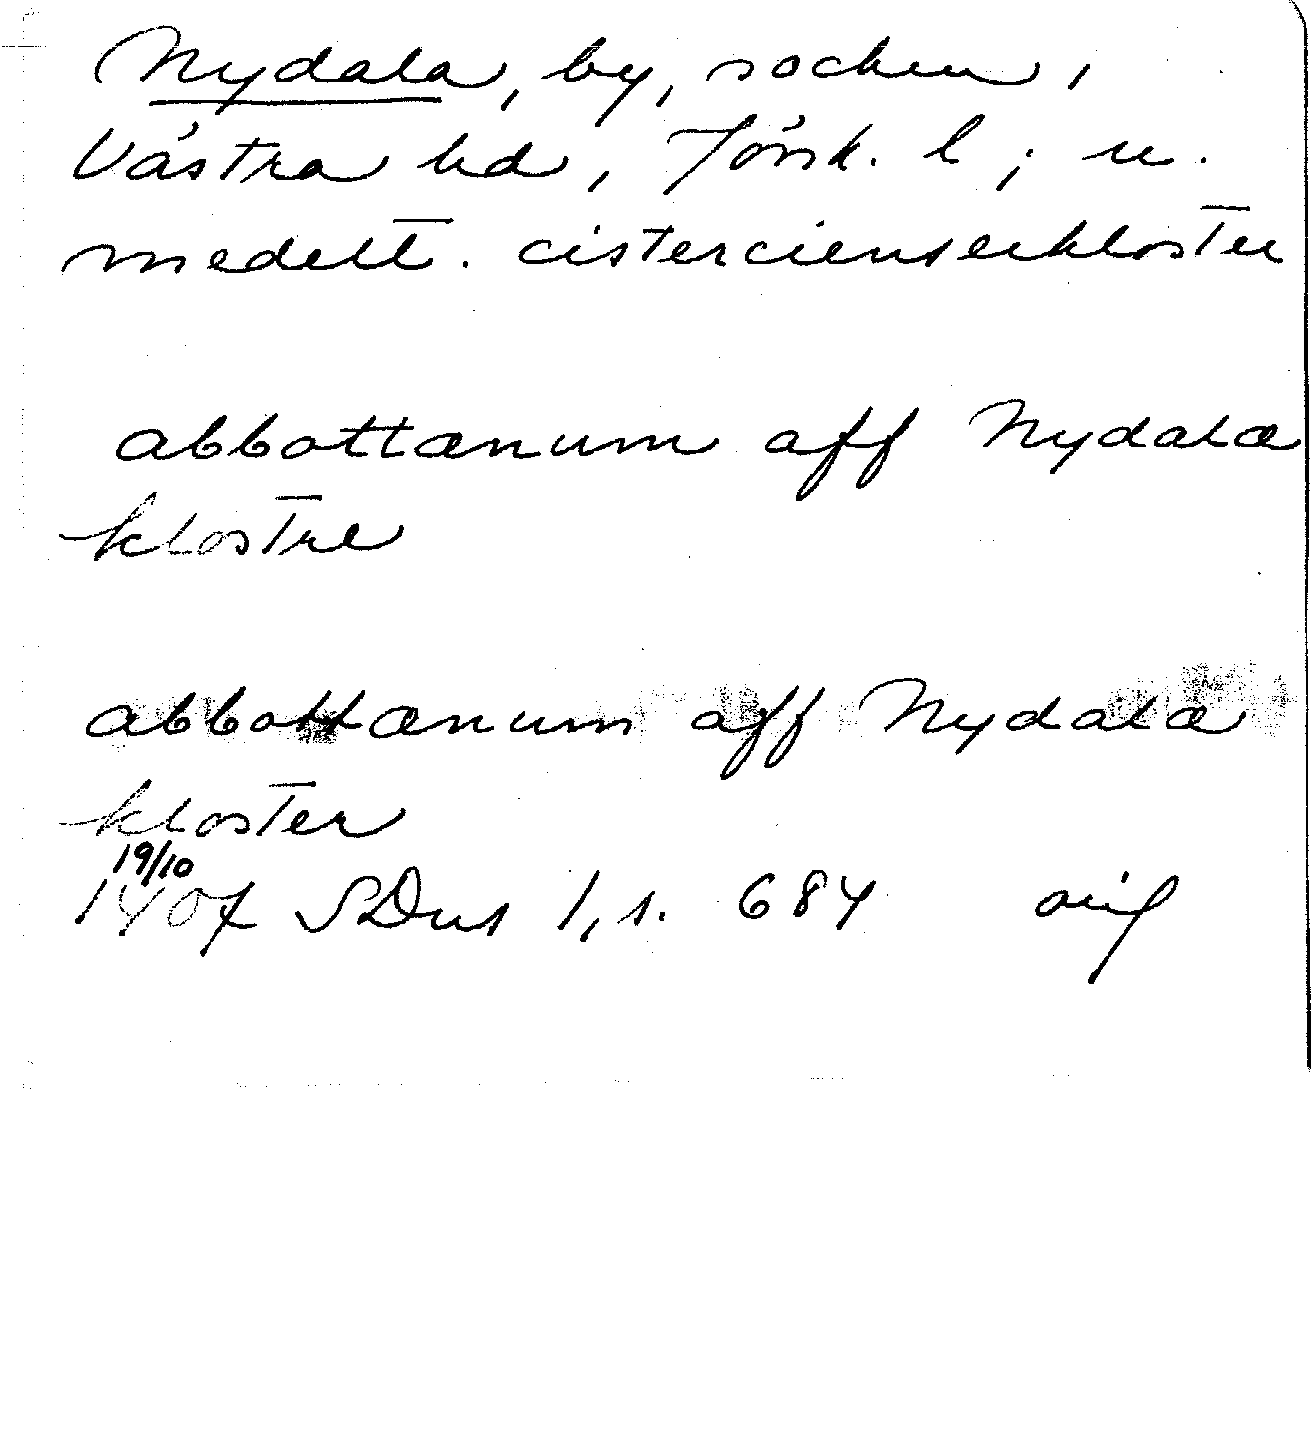 Nydala, by, socken,
Västra hd, Jönk. l; n.
medelt. cistercienserkloster
abbottænum aff Nydala
klostre
abbottænum aff Nydalæ
kloster
19/10
1407 SDns 1, s. 684 orig